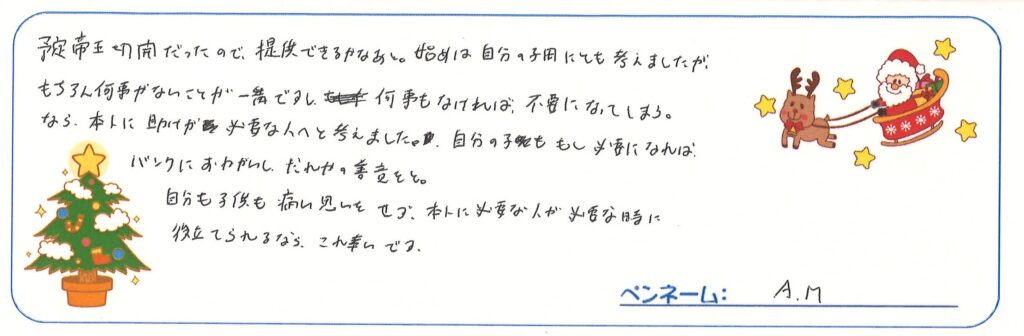 予定帝王切開だったので、提供できるかなあと。始めは自分の子用にとも考えましたが、
もちろん何事がないことが一番ですし、何事もなければ、不要になってしまう。
なら、本トに助けが必要な人へと考えました。自分の子ももし必要になれば、
バンクにおねがいし、だれかの善意をと。
自分も子供も痛い思いをせず、本トに必要な人が必要な時に
役立てられるなら、これ幸いです。
ペンネーム: A.M